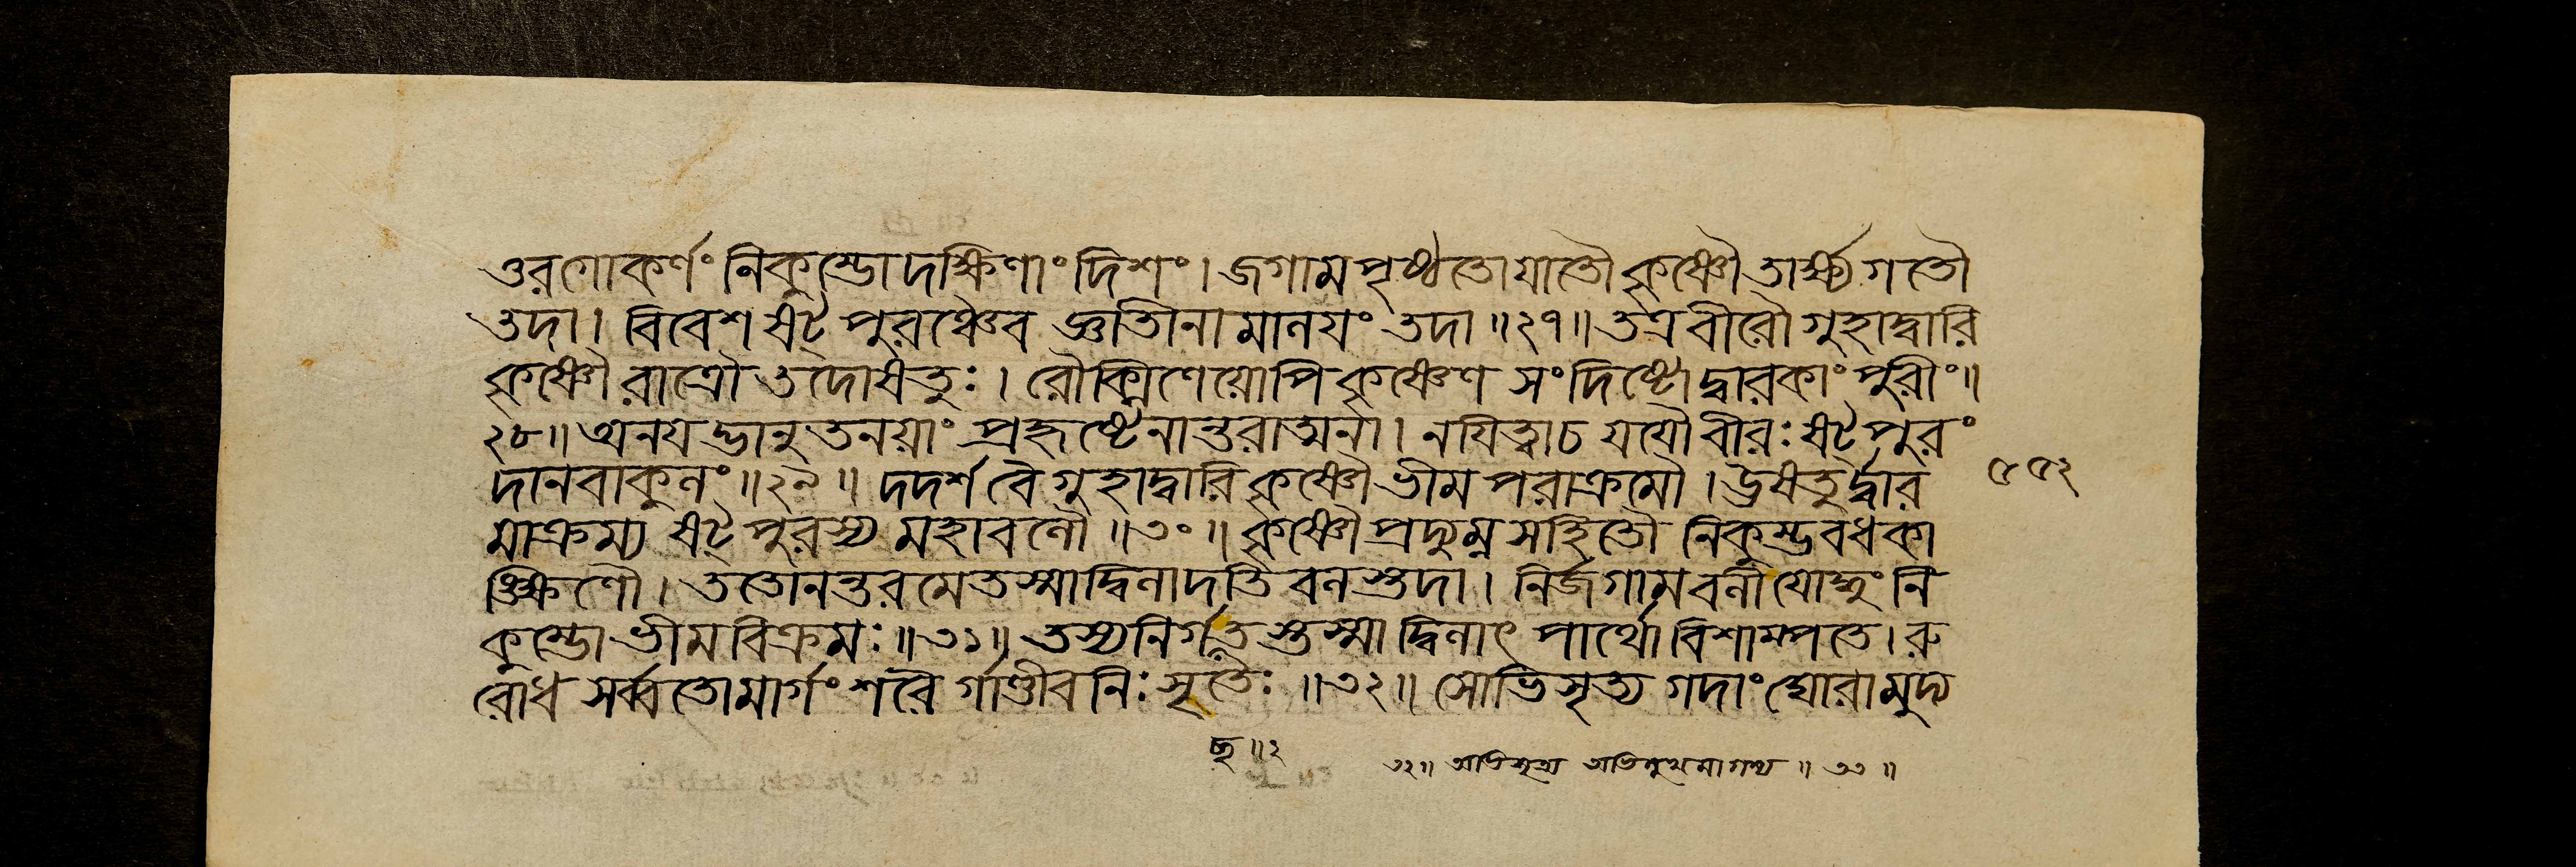 ত্তরগোকর্ণং নিকুম্ভোদক্ষিণাং দিশং। জগাম পৃষ্ঠতোযাতৌ কৃষ্ণৌ তার্ক্ষ্যগতৌ
তদা। বিবেশ ষট্পুরঞ্চৈব জ্ঞাতীনামালয়ং তদা॥২৭॥ তত্র বীরৌ গুহাদ্বারি
কৃষ্ণৌ রাত্রৌ তদোষতুঃ। রৌক্মিণেয়োপি কৃষ্ণেণ সংদিষ্টো দ্বারকাং পুরীং॥
২৮॥ অনয়দ্ভানুতনয়াং প্রহৃষ্টেনান্তরাত্মনা। নয়িত্বা চ যযৌ বীরঃ ষট্পুরং
দানবাকুলং॥২৯॥ দদর্শ বৈ গুহাদ্বারি কৃষ্ণৌ ভীমপরাক্রমৌ। ঊষতুর্দ্দ্বার
মাক্রম্য ষট্পুরস্য মহাবলৌ॥৩০॥ কৃষ্ণৌ প্রদ্যুম্নসহিতৌ নিকুম্ভবধকা
ঙ্ক্ষিণৌ। ততোনন্তরমেতস্মাদ্বিলাদতিবলস্তদা। নির্জগাম বলী যোদ্ধুং নি
কুম্ভো ভীমবিক্রমঃ॥৩১॥ তস্য নির্গতস্তস্মাদ্বিলাৎ পার্থো বিশাম্পতে। রু
রোধ সর্ব্বতোমার্গং শরৈর্গাণ্ডীবনিঃসৃতৈঃ॥৩২॥ সোভিসৃত্য গদাং ঘোরামুদ্য
৫৫২
৩২॥ অভিসৃত্য অভিমুখমাগত্য ॥ ৩৩ ॥